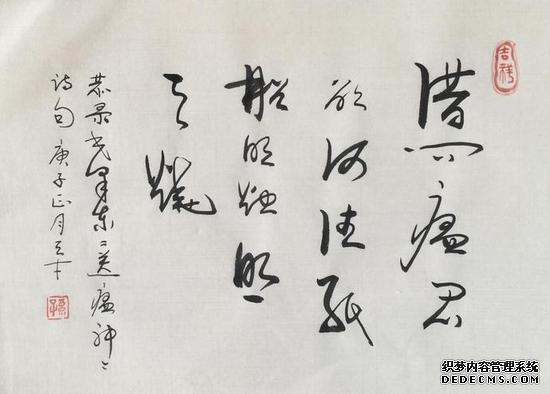 吉祥
借问瘟君
欲何往纸
船明烛照
天烧
恭录毛泽东“送瘟神”
诗句 庚子正月
孙
织梦内容管理系统
DEDECMS.COM